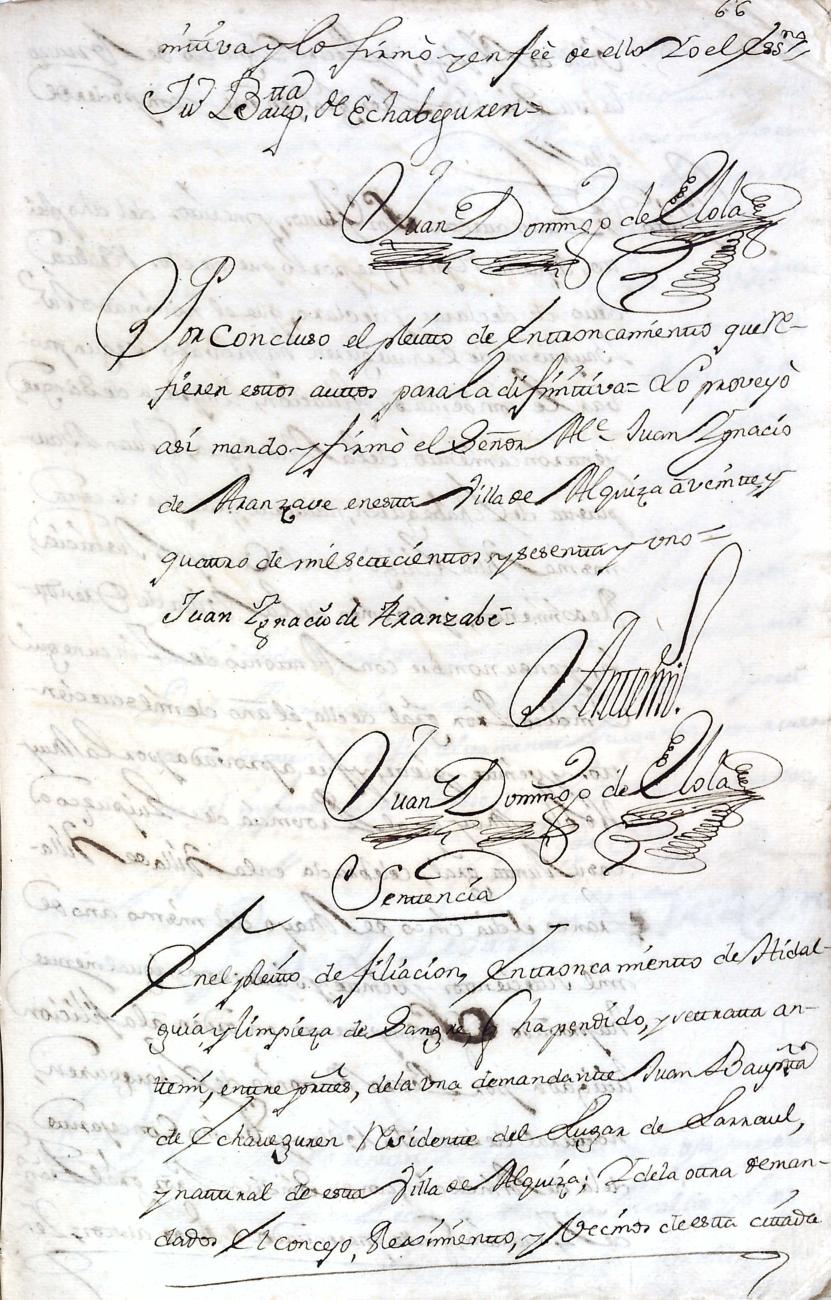 66
nitiva y lo firmò y en feè de ello Yo el Essno
Ju Bauptta de Echabeguren=
Juan Domingo de Elola
Por concluso el pleitto de Enttroncamientto que re-
fieren esttos auttos para la difinittiva= Lo proveyò
asi mando y firmò el Señor Alе Juan Ygnacio
de Aranzave en estta Villa de Alquiza à veintte y
quattro de mil settecienttos y sesentta y uno=
Juan Ygnacio de Aranzabe=
Antemi.
Juan Domingo de Elola
Senttencia
En el pleitto de filiacion, Enttroncamientto de Hidal-
guia, y limpieza de Sangre, q ha pendido, y se ttratta an-
ttemi, enttre parttes, de la una demandantte Juan Baupttta
de Echaveguren Residentte del Lugar de Larraul,
y natural de estta Villa de Alquiza; Y de la ottra deman-
dados El Concejo, Reximientto, y Vecinos de estta cittada